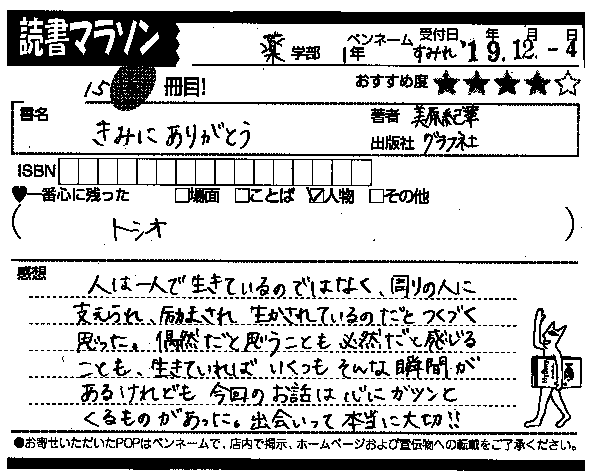 読書マラソン
薬 学部 1年 ペンネーム すみれ 受付日 '19年 12月 -4日
15 冊目! おすすめ度 ★★★★☆
書名 きみにありがとう
著者 美原紀華
出版社 グラフ社
ISBN
♥一番心に残った □場面 □ことば ☑人物 □その他
( トシオ )
感想
人は一人で生きているのではなく、周りの人に
支えられ、励まされ 生かされているのだと つくづく
思った。偶然だと思うことも 必然だと感じる
ことも、生きていれば いくつも そんな瞬間が
あるけれども 今回のお話は 心に ガツンと
くるものがあった。出会いって 本当に大切!!
●お寄せいただいたPOPはペンネームで、店内で掲示、ホームページおよび宣伝物への転載をご了承ください。